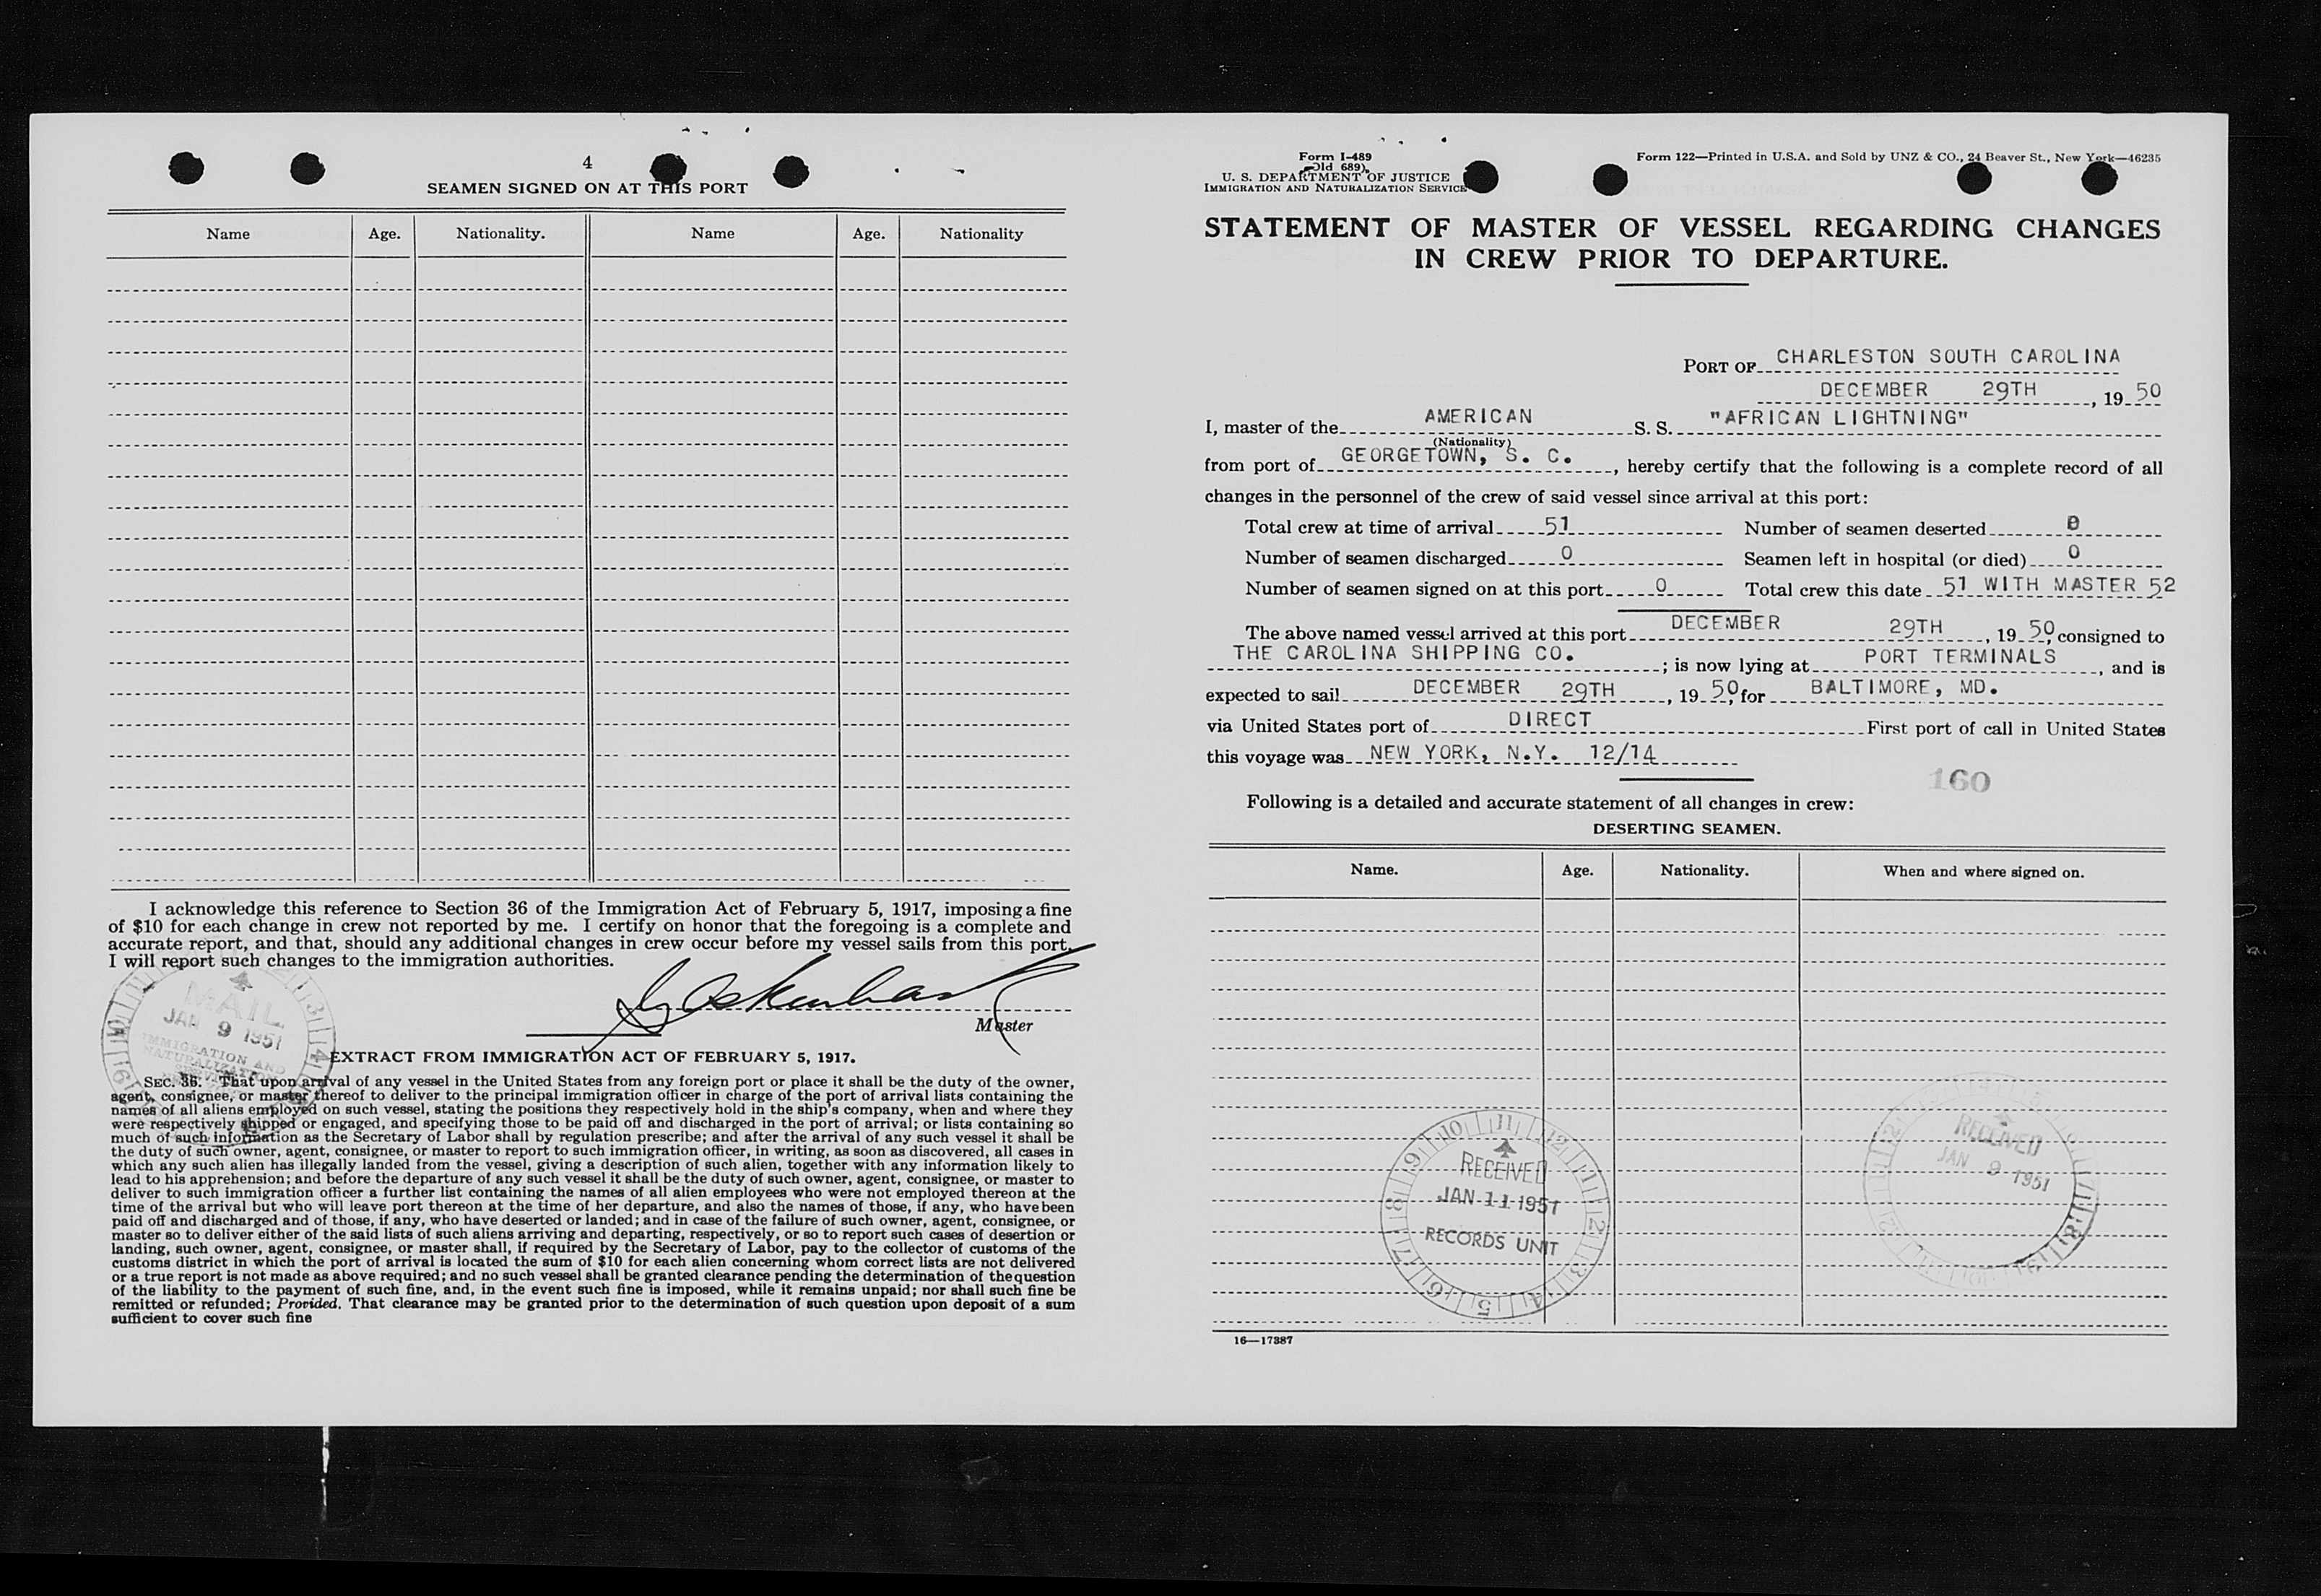 4
SEAMEN SIGNED ON AT THIS PORT
Name Age. Nationality. Name Age. Nationality
I acknowledge this reference to Section 36 of the Immigration Act of February 5, 1917, imposing a fine
of $10 for each change in crew not reported by me. I certify on honor that the foregoing is a complete and
accurate report, and that, should any additional changes in crew occur before my vessel sails from this port,
I will report such changes to the immigration authorities.
Master
MAIL
JAN 9 1951
IMMIGRATION AND
NATURALIZATION
EXTRACT FROM IMMIGRATION ACT OF FEBRUARY 5, 1917.
SEC. 36. That upon arrival of any vessel in the United States from any foreign port or place it shall be the duty of the owner,
agent, consignee, or master thereof to deliver to the principal immigration officer in charge of the port of arrival lists containing the
names of all aliens employed on such vessel, stating the positions they respectively hold in the ship's company, when and where they
were respectively shipped or engaged, and specifying those to be paid off and discharged in the port of arrival; or lists containing so
much of such information as the Secretary of Labor shall by regulation prescribe; and after the arrival of any such vessel it shall be
the duty of such owner, agent, consignee, or master to report to such immigration officer, in writing, as soon as discovered, all cases in
which any such alien has illegally landed from the vessel, giving a description of such alien, together with any information likely to
lead to his apprehension; and before the departure of any such vessel it shall be the duty of such owner, agent, consignee, or master to
deliver to such immigration officer a further list containing the names of all alien employees who were not employed thereon at the
time of the arrival but who will leave port thereon at the time of her departure, and also the names of those, if any, who have been
paid off and discharged and of those, if any, who have deserted or landed; and in case of the failure of such owner, agent, consignee, or
master so to deliver either of the said lists of such aliens arriving and departing, respectively, or so to report such cases of desertion or
landing, such owner, agent, consignee, or master shall, if required by the Secretary of Labor, pay to the collector of customs of the
customs district in which the port of arrival is located the sum of $10 for each alien concerning whom correct lists are not delivered
or a true report is not made as above required; and no such vessel shall be granted clearance pending the determination of the question
of the liability to the payment of such fine, and, in the event such fine is imposed, while it remains unpaid; nor shall such fine be
remitted or refunded; Provided, That clearance may be granted prior to the determination of such question upon deposit of a sum
sufficient to cover such fine
Form I-489
(Old 689)
U. S. DEPARTMENT OF JUSTICE
IMMIGRATION AND NATURALIZATION SERVICE
Form 122—Printed in U.S.A. and Sold by UNZ & CO., 24 Beaver St., New York—46235
STATEMENT OF MASTER OF VESSEL REGARDING CHANGES
IN CREW PRIOR TO DEPARTURE.
PORT OF CHARLESTON SOUTH CAROLINA
DECEMBER 29TH, 19 50
I, master of the AMERICAN S. S. "AFRICAN LIGHTNING"
(Nationality)
from port of GEORGETOWN, S. C., hereby certify that the following is a complete record of all
changes in the personnel of the crew of said vessel since arrival at this port:
Total crew at time of arrival 51 Number of seamen deserted 0
Number of seamen discharged 0 Seamen left in hospital (or died) 0
Number of seamen signed on at this port 0 Total crew this date 51 WITH MASTER 52
The above named vessel arrived at this port DECEMBER 29TH, 19 50, consigned to
THE CAROLINA SHIPPING CO.; is now lying at PORT TERMINALS, and is
expected to sail DECEMBER 29TH, 19 50, for BALTIMORE, MD.
via United States port of DIRECT First port of call in United States
this voyage was NEW YORK, N.Y. 12/14
160
Following is a detailed and accurate statement of all changes in crew:
DESERTING SEAMEN.
Name. Age. Nationality. When and where signed on.
RECEIVED
JAN 11 1951
RECORDS UNIT
RECEIVED
JAN 9 1951
16—17387